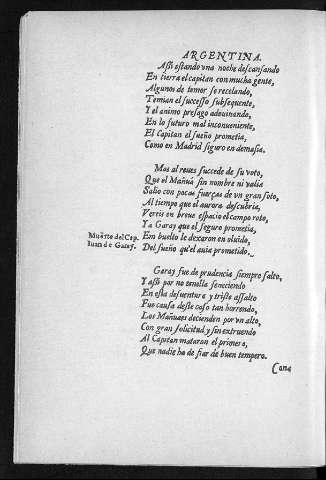 ARGENTINA.
Assi estando vna noche descansando
En tierra el capitan con mucha gente,
Algunos de temor se recelando,
Temian el successo subsequente,
Y el animo presago adeuinando,
En lo futuro mal inconueniente,
El Capitan el sueño prometia,
Como en Madrid siguro en demasia.
Mas al reues succede de su voto,
Que el Mañuà sin nombre ni valia
Salio con pocas fuerças de vn gran soto,
Al tiempo que el aurora descubria,
Vereis en breue espacio el campo roto,
Ya Garay que el seguro prometia,
Muerte del Cap. Iuan de Garay.
Em buelto le dexaron en oluido,
Del sueño qu'el auia prometido.
Garay fue de prudencia siempre falto,
Y assi por no tenella feneciendo
En esta desuentura y triste assalto
Fue causa deste caso tan horrendo,
Los Mañuaes decienden por vn alto,
Con gran solicitud, y sin estruendo
Al Capitan mataron el primero,
Que nadie ha de fiar de buen tempero.
Cona